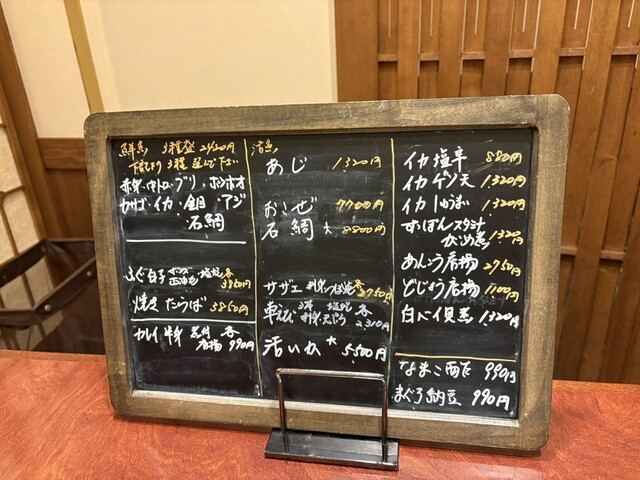 鮮魚 3種盛 2420円
下記より3種選んで下さい
赤身・中トロ・ブリ・ホウボオ
カサゴ・イカ・金目・アジ
石鯛
ふぐ白子 ポンズ 塩焼 各 3850円
焼きたらば 3850円
カレイ 半身 煮付 唐揚 各 990円
活魚
あじ 1320円
おこぜ 7700円
石鯛 大 8800円
サザエ 刺身 つぼ焼 各 2750円
車えび 塩焼 刺身 天ぷら 各 2310円
活いか 大 5,500円
イカ塩辛 880円
イカゲソ天 1320円
イカしゅうまい 1320円
すっぽんスタミナ 1320円
あんこう唐揚 2750円
どじょう唐揚 1100円
白バイ貝煮 1320円
なまこ酉乍 990円
まぐろ納豆 990円